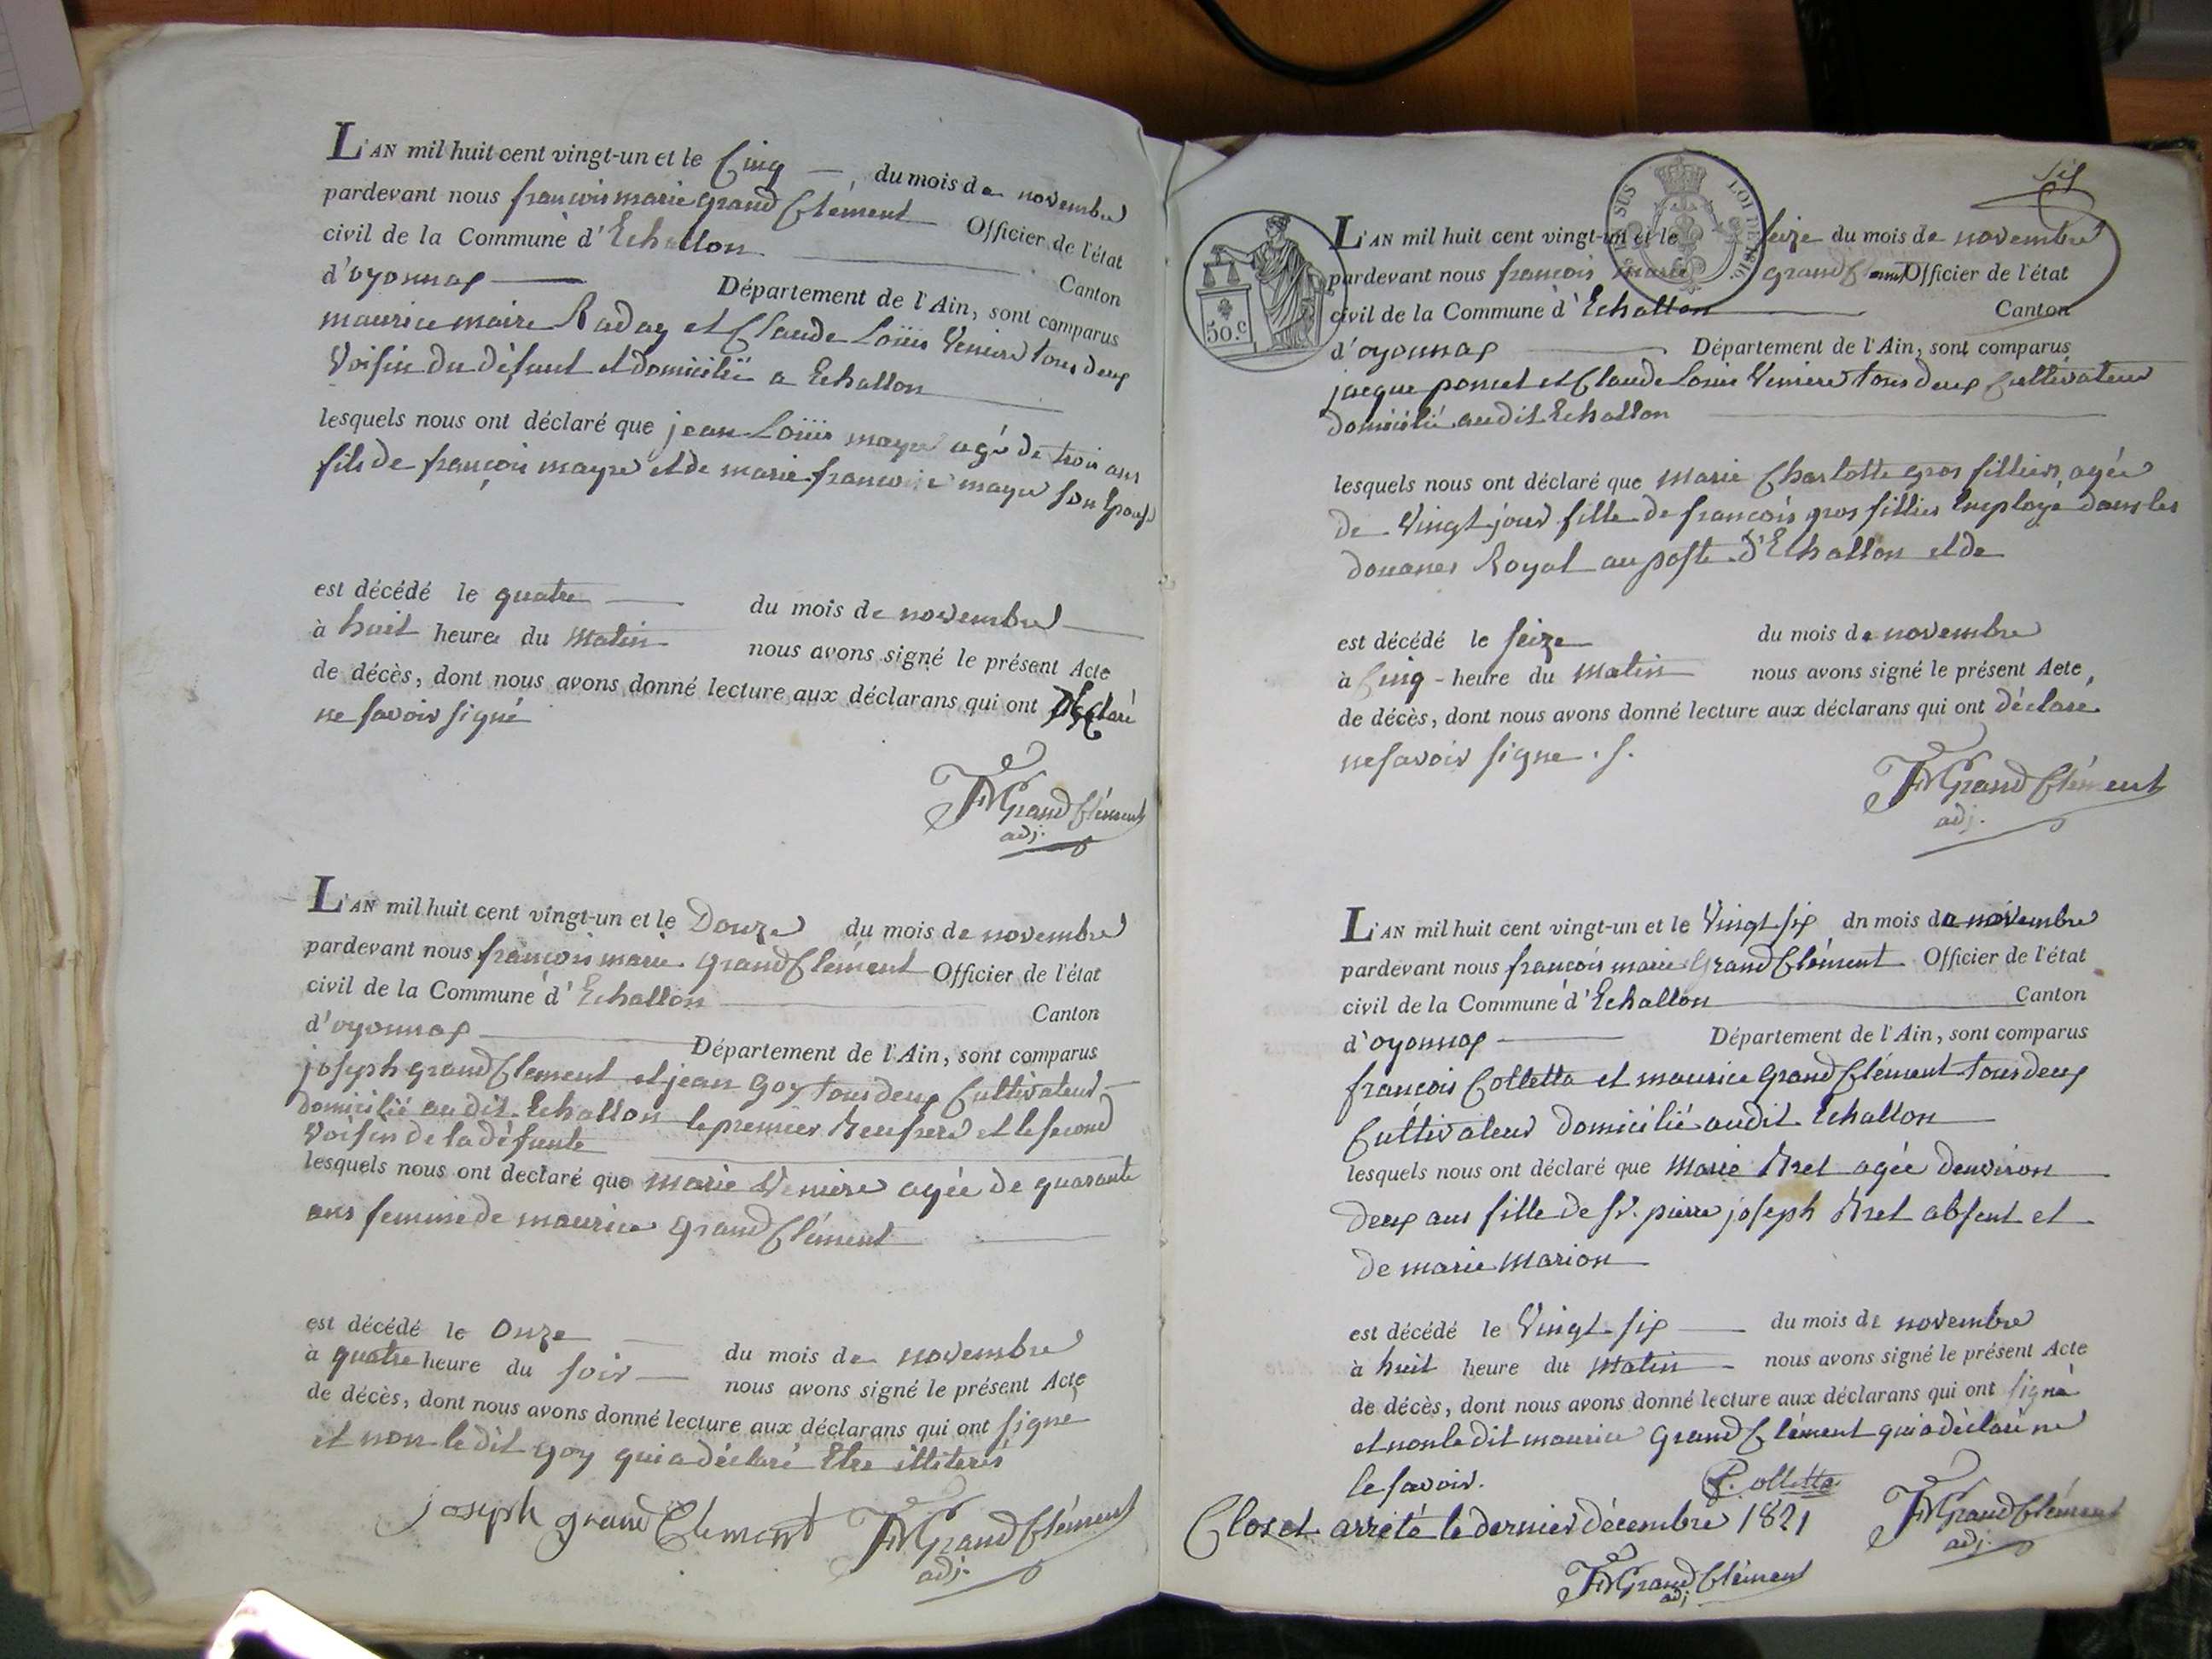 L'AN mil huit cent vingt-un et le Cinq du mois de novembre
pardevant nous françois marie grand Clément Officier de l'état
civil de la Commune d'Echallon Canton
d'oyonnax Département de l'Ain, sont comparus
maurice maire Raday et Claude Loüis Veniere tous deux
Voisin du défunt et domicilié a Echallon
lesquels nous ont déclaré que jean Loüis mayre agé de trois ans
fils de françois mayre et de marie francoise mayre son Epouse
est décédé le quatre du mois de novembre
à huit heure du Matin nous avons signé le présent Acte
de décès, dont nous avons donné lecture aux déclarans qui ont Déclaré
ne savoir signé
FM Grand Clément
adj.
L'AN mil huit cent vingt-un et le Douze du mois de novembre
pardevant nous françois marie grand Clément Officier de l'état
civil de la Commune d'Echallon Canton
d'oyonnax Département de l'Ain, sont comparus
joseph grand Clement et jean Goy tous deux Cultivateur
domicilié audit Echallon le premier Beufrere et le second
Voisin de la défunte
lesquels nous ont declaré que Marie Veniere agée de quarante
ans femme de maurice grand Clément
est décédé le Onze du mois de novembre
à quatre heure du soir nous avons signé le présent Acte
de décès, dont nous avons donné lecture aux déclarans qui ont signé
et non le dit goy qui a déclaré Etre illiterés
joseph grand Clement FM Grand Clément
adj.
six
50.c
L'AN mil huit cent vingt-un et le seize du mois de novembre
pardevant nous françois marie grand Clément Officier de l'état
civil de la Commune d'Echallon Canton
d'oyonnax Département de l'Ain, sont comparus
jacque poncet et Claude Louis Veniere tous deux Cultivateur
domicilié audit Echallon
lesquels nous ont déclaré que Marie Charlotte gros fillier, agée
de Vingt jour fille de françois gros fillier Employé dans les
douanes Royal au poste d'Echallon et de
est décédé le seize du mois de novembre
à Cinq heure du Matin nous avons signé le présent Acte
de décès, dont nous avons donné lecture aux déclarans qui ont déclaré
ne savoir signe . s.
FM Grand Clément
adj.
L'AN mil huit cent vingt-un et le Vingt six du mois de novembre
pardevant nous françois marie Grand Clément Officier de l'état
civil de la Commune d'Echallon Canton
d'oyonnax Département de l'Ain, sont comparus
françois Colletta et maurice grand Clément tous deux
Cultivateur domicilié audit Echallon
lesquels nous ont déclaré que Marie Bret agée denviron
deux ans fille de Sr. pierre joseph Bret absent et
de marie Marion
est décédé le Vingt six du mois de novembre
à huit heure du Matin nous avons signé le présent Acte
de décès, dont nous avons donné lecture aux déclarans qui ont signé
et non le dit maurice grand Clément qui a déclaré ne
le savoir. Colletta FM Grand Clément
adj.
Clos et arrété le dernier décembre 1821
FM Grand Clément
adj